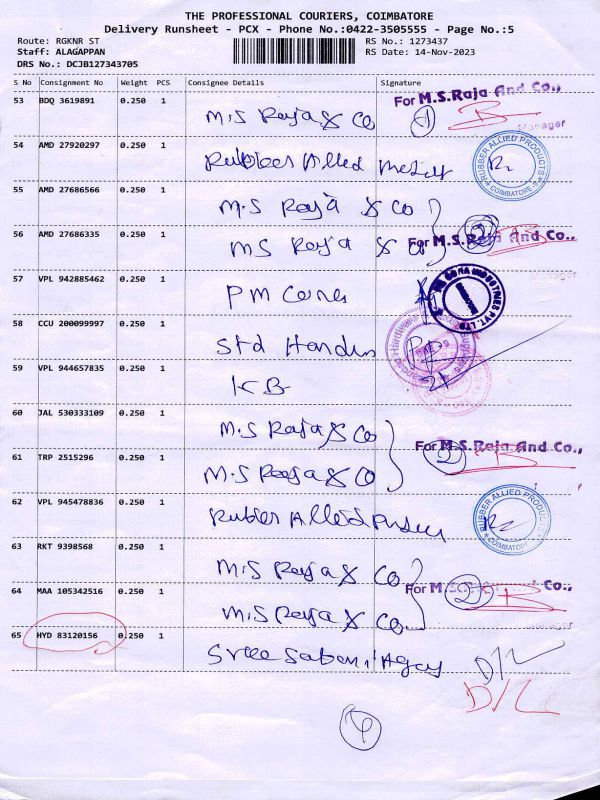 THE PROFESSIONAL COURIERS, COIMBATORE
Delivery Runsheet - PCX - Phone No.:0422-3505555 - Page No.:5
Route: RGKNR ST RS No.: 1273437
Staff: ALAGAPPAN RS Date: 14-Nov-2023
DRS No.: DCJB127343705
S No Consignment No Weight PCS Consignee Details Signature
53 BDQ 3619891 0.250 1 M.S Raja & Co For M.S.Raja And Co.,
Manager
54 AMD 27920297 0.250 1 Rubber Allied RUBBER ALLIED PRODUCTS COIMBATORE
55 AMD 27686566 0.250 1 M.S Raja & Co
56 AMD 27686335 0.250 1 MS Raja & Co For M.S.Raja And Co.,
Manager
57 VPL 942885462 0.250 1 PM
58 CCU 200099997 0.250 1 Std
59 VPL 944657835 0.250 1 KB
60 JAL 530333109 0.250 1 M.S Raja & Co
61 TRP 2515296 0.250 1 M.S Raja & Co For M.S.Raja And Co.,
62 VPL 945478836 0.250 1 Rubber Allied RUBBER ALLIED PRODUCTS COIMBATORE
63 RKT 9398568 0.250 1 M.S Raja & Co
64 MAA 105342516 0.250 1 M.S Raja & Co. For M.S. Co.,
65 HYD 83120156 0.250 1 Sree Sabari Agcy D/L
D/L